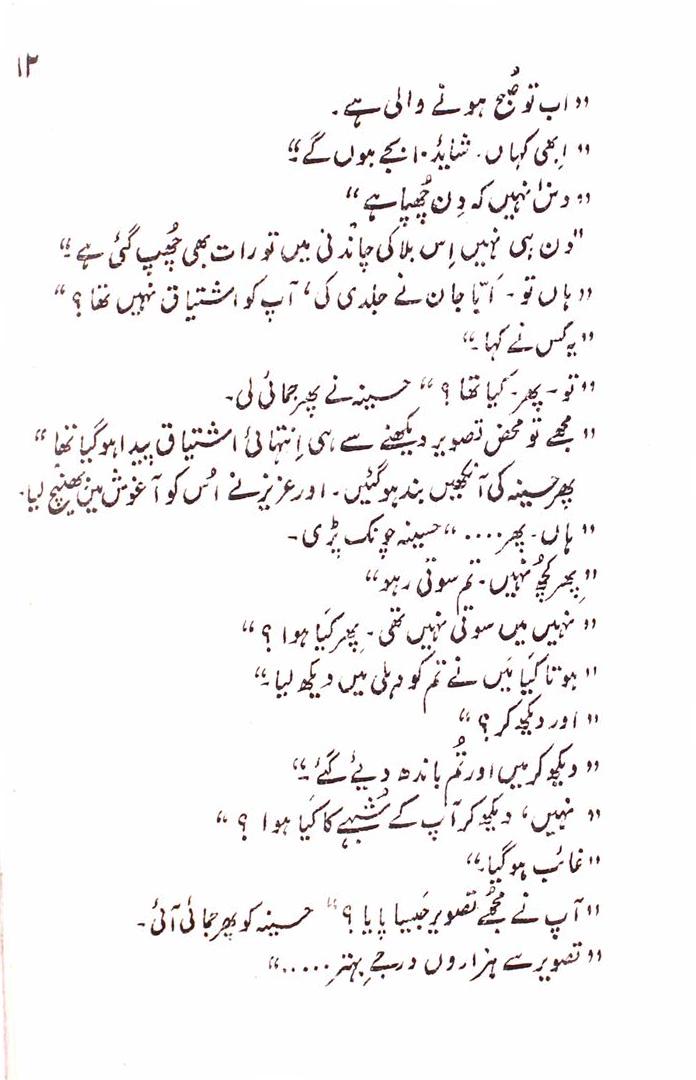 ۱۲
"اب تو صُبح ہونے والی ہے۔
"ابھی کہاں۔ شاید ۱۰ بجے ہوں گے"
"دن نہیں کہ دِن چُھپا ہے"
"دن ہی نہیں اِس بلا کی چاندنی میں تو رات بھی چُھپ گئی ہے"
"ہاں تو۔ ابّا جان نے جلدی کی، آپ کو اشتیاق نہیں تھا؟"
"یہ کس نے کہا۔"
"تو۔ پھر۔ کیا تھا؟" حسینہ نے پھر جمائی لی۔
"مجھے تو محض تصویر دیکھنے سے ہی اِنتہائی اشتیاق پیدا ہوگیا تھا"
پھر حسینہ کی آنکھیں بند ہوگئیں۔ اور عزیز نے اُس کو آغوش میں بھینچ لیا۔
"ہاں۔ پھر...." حسینہ چونک پڑی۔
"پِھر کچُھ نہیں۔ تم سوتی رہو"
"نہیں میں سوتی نہیں تھی۔ پِھر کیَا ہوا؟"
"ہوتا کیَا مَیں نے تم کو دہلی میں دیکھ لیا۔"
"اور دیکھ کر؟"
"دیکھ کر میں اور تُم باندھ دیئے گئے۔"
"نہیں، دیکھ کر آپ کے شُبہے کا کیَا ہوا؟"
"غائب ہوگیا۔"
"آپ نے مُجھے تصویر جَیسا پایا؟" حسینہ کو پِھر جمائی آئی۔
"تصویر سے ہزاروں درجے بہتر....."